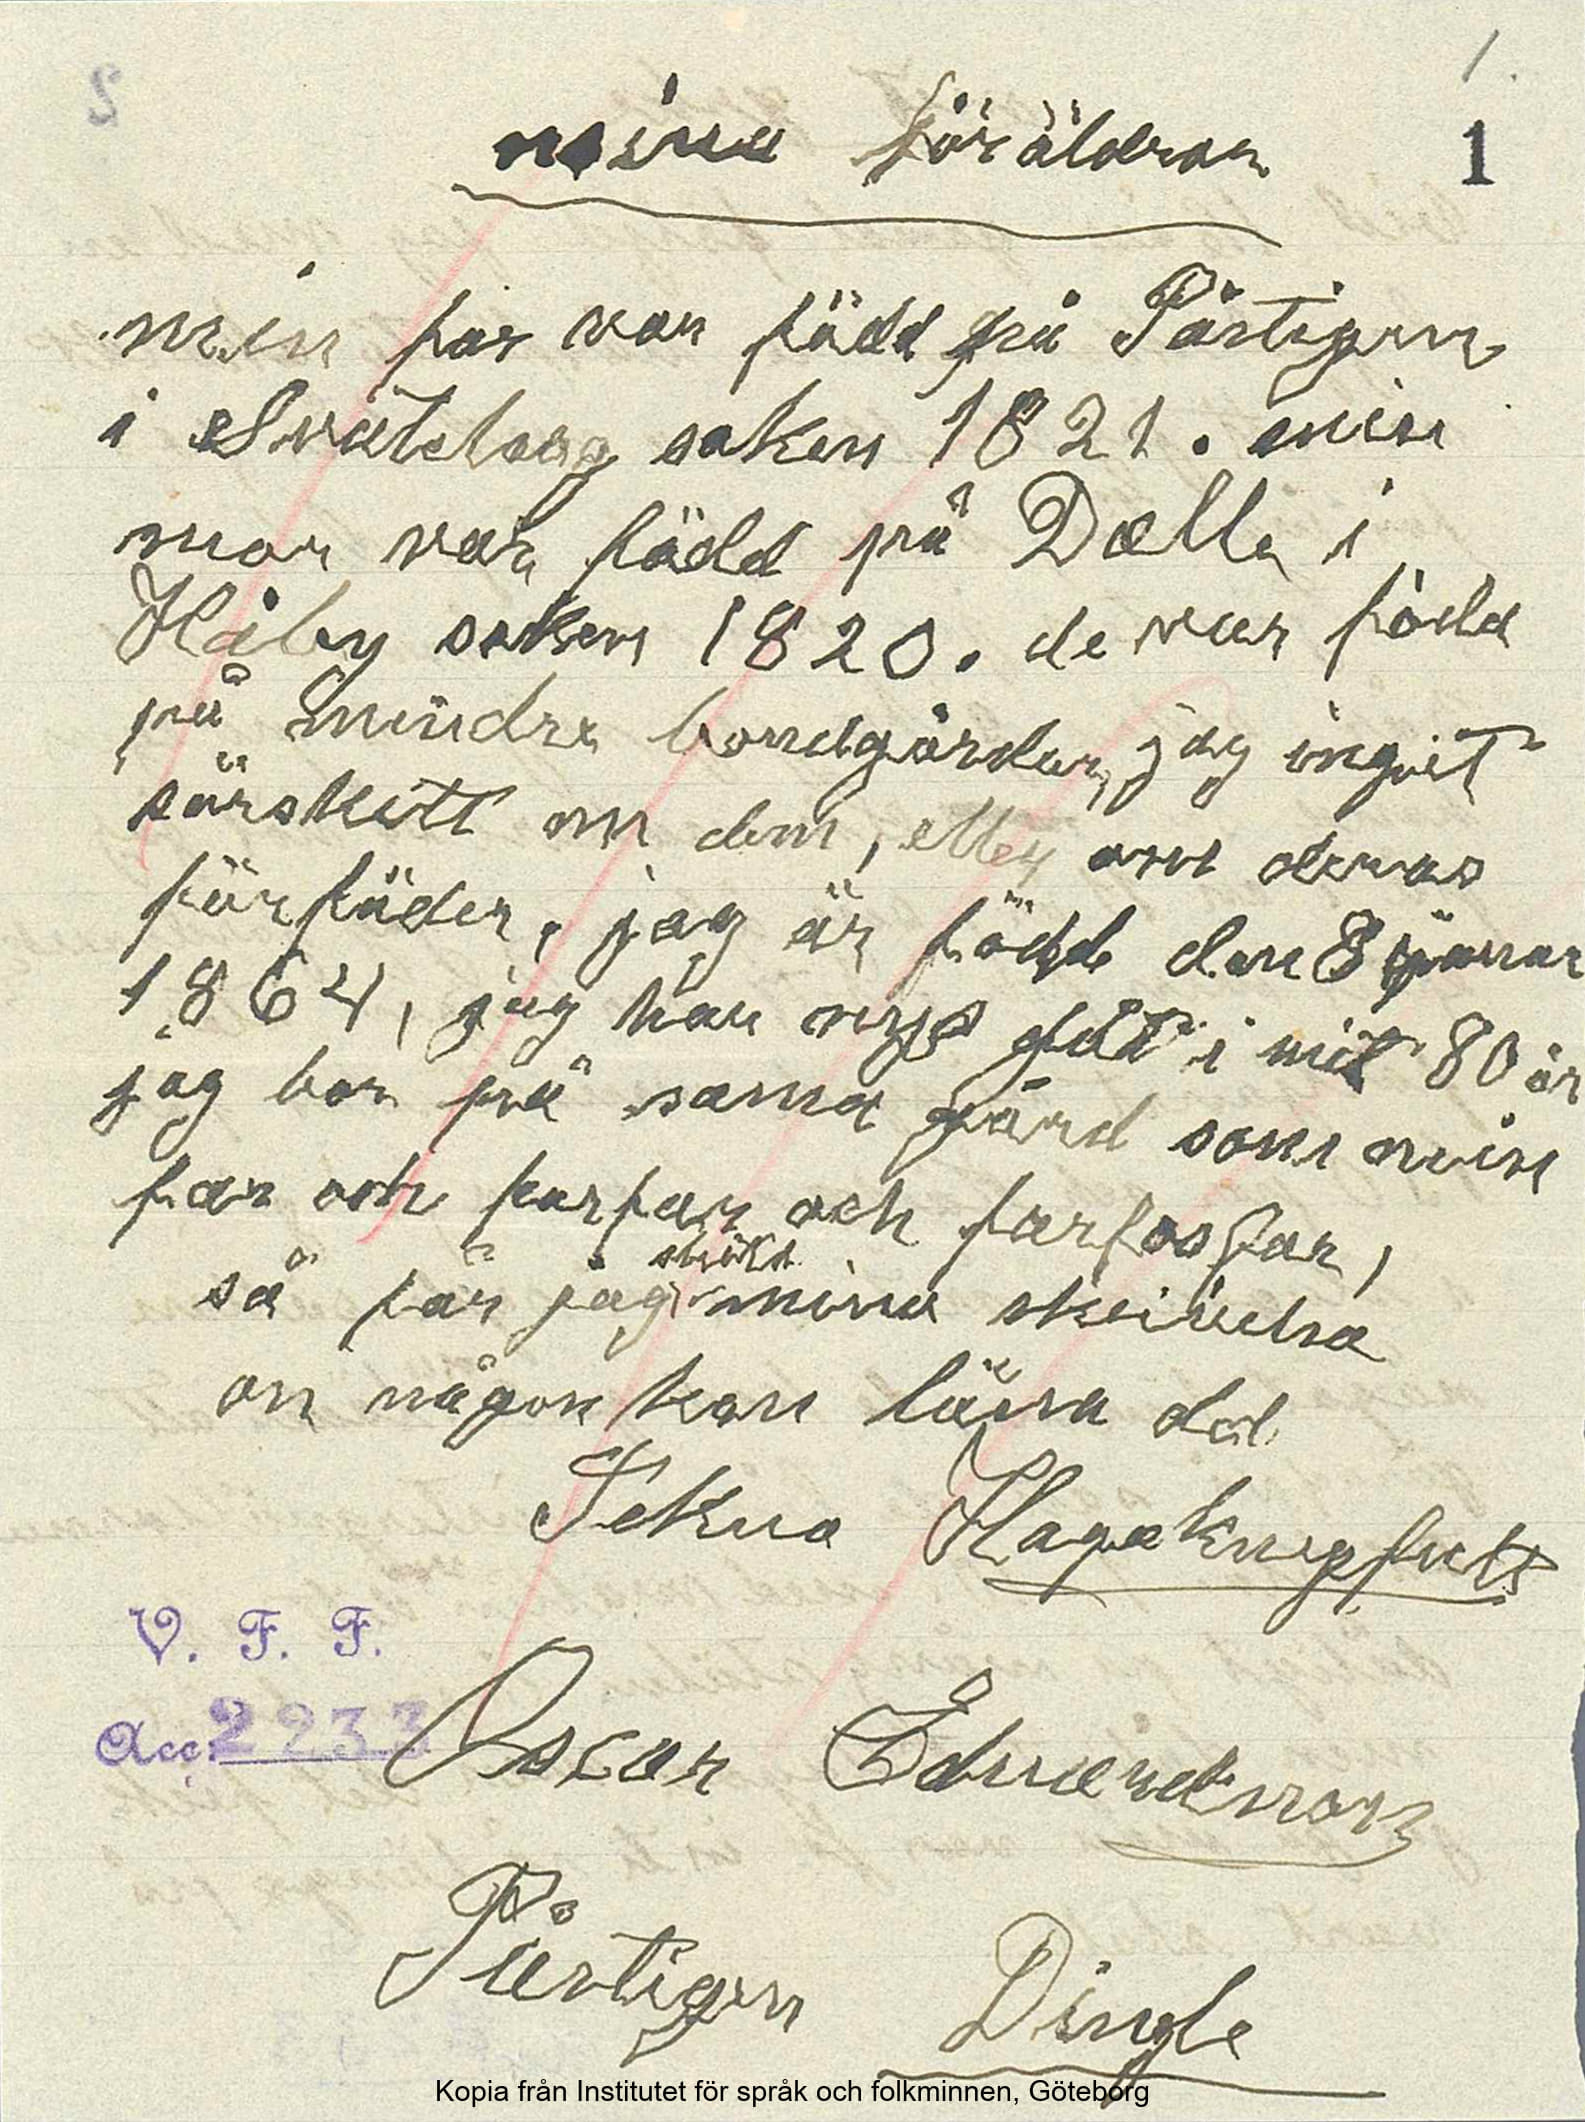 1.
1
mina föräldrar
min far var född på Pårtigen
i Svateborg soken 1821. min
mor var född på Dalle i
Håby soken 1820. de var föda
på mindre bondgårdar, jag inget
särskilt om dem, eller om deras
förfäder, jag är född den 8 januar
1864, jag har nys gåt i mit 80 år
jag bor på sama gård som min
far och farfar och farfarsfar,
så får jag sluta mina
om någon kan läsa det
Tekna Högaktnigsfult
V. F. F.
Acc. 2233
Oscar Edmundsson
Pårtigen Dingle
Kopia från Institutet för språk och folkminnen, Göteborg